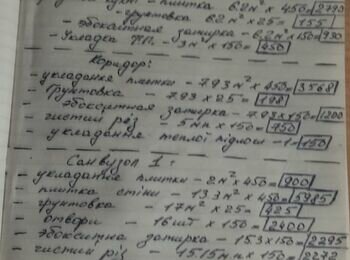 - плитка 6.2 м² × 450 = 2790
- грунтовка 6.2 м² × 25 = 155
- эбокситная затирка - 6.2 м² × 150 = 930
- Укладка Т.П. - 3 м² × 150 = 450
Коридор:
- укладання плитки - 7.93 м² × 450 = 3568
- Грунтовка - 7.93 × 25 = 198
- эбокситная затирка - 7.93 × 150 = 1200
- чистий різ - 5 мп × 150 = 750
- укладання теплої підлоги - 1 = 150
Санвузол 1:
- укладання плитки - 2 м² × 450 = 900
- плитка стіни - 13.3 м² × 450 = 5985
- грунтовка - 17 м² × 25 = 425
- отвори - 16 шт × 150 = 2400
- эбокситна затирка - 15.3 × 150 = 2295
- чистий різ - 15.15 м.п × 150 = 2272